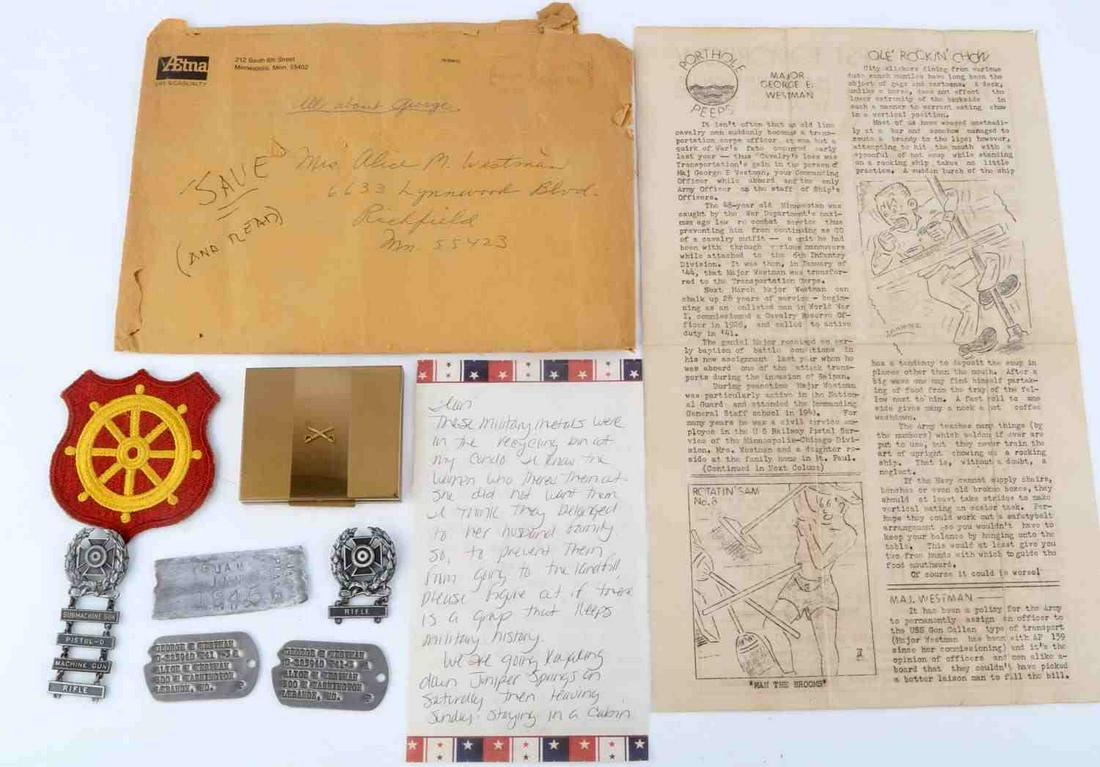 Ætna
LIFE & CASUALTY
212 South 6th Street
Minneapolis, Minn. 55402
All about George
"SAVE"
(AND READ)
Mrs. Alice M. Westman
6633 Lynnwood Blvd.
Richfield
Mn. 55423
PORTHOLE
PEEPS
MAJOR
GEORGE E.
WESTMAN
It isn't often that an old line
cavalry man suddenly becomes a trans-
portation corps officer. It was but a
quirk of War's fate occurred early
last year — thus "Cavalry's loss was
Transportation's gain in the person of
Maj George E Westman, your Commanding
Officer while aboard and the only
Army Officer on the staff of Ship's
Officers.
The 48-year old Minnesotan was
caught by the War Department's maxi-
mum age law re combat service thus
preventing him from continuing as CO
of a cavalry outfit — a unit he had
been with through various maneuvers
while attached to the 6th Infantry
Division. It was then, in January of
'44, that Major Westman was transfer-
red to the Transportation Corps.
Next March Major Westman can
chalk up 28 years of service - begin-
ning as an enlisted man in World War
I, commissioned a Cavalry Reserve Of-
ficer in 1926, and called to active
duty in '41.
The genial Major received an ear-
ly baption of battle conditions in
his new assignment last year when he
was aboard one of the attack trans-
ports during the invasion of Saipan.
During peacetime Major Westman
was particularly active in the Nation-
al Guard and attended the Commanding
General Staff school in 1941. For
many years he was a civil service em-
ployee in the U S Railway Postal Ser-
vice of the Minneapolis-Chicago Divi-
sion. Mrs. Westman and a daughter re-
side at the family home in St. Paul.
(Continued in Next Column)
ROTATIN' SAM
No. 3
"MAN THE BROOMS"
OLE' ROCKIN' CHOW
City slickers dining from various
dude ranch mantles have long been the
object of gags and cartoons. A deck,
unlike a horse, does not effect the
lower extremity of the backside in
such a manner to warrant eating chow
in a vertical position.
Most of us have weaved unsteadi-
ly at a bar and somehow managed to
route a brandy to the lips; however,
attempting to hit the mouth with a
spoonful of hot soup while standing
on a rocking ship takes no little
practice. A sudden lurch of the ship
has a tendency to deposit the soup in
places other than the mouth. After a
big wave one may find himself partak-
ing of food from the tray of the fel-
low next to him. A fast roll to one
side gives many a neck a hot coffee
washdown.
The Army teaches many things (by
the numbers) which seldom if ever are
put to use, but they never train the
art of upright chowing on a rocking
ship. That is, without a doubt, a
neglect.
If the Navy cannot supply chairs,
benches or even old broken boxes, they
should at least take strides to make
vertical eating an easier task. Per-
haps they could work out a safetybelt
arrangement so you wouldn't have to
keep your balance by hanging onto the
table. This would at least give you
two free hands with which to guide the
food mouthward.
Of course it could be worse!
MAJ. WESTMAN
It has been a policy for the Army
to permanently assign an officer to
the USS Gen Callan type of transport
(Major Westman has been with AP 139
since her commissioning) and it's the
opinion of officers and men alike a-
board that they couldn't have picked
a better liaison man to fill the bill.
Dear
These Military metals were
in the recycling bin at
my Condo. I knew the
women who threw them out.
She did not want them
I think they belonged
to her husband family
So, to prevent them
from going to the landfill,
please figure out if there
is a group that keeps
military history.
We are going Kayaking
down Juniper Springs on
Saturday then leaving
Sunday. Staying in a Cabin
SUBMACHINE GUN
PISTOL-D
MACHINE GUN
RIFLE
JAN
RIFLE
GEORGE E WESTMAN